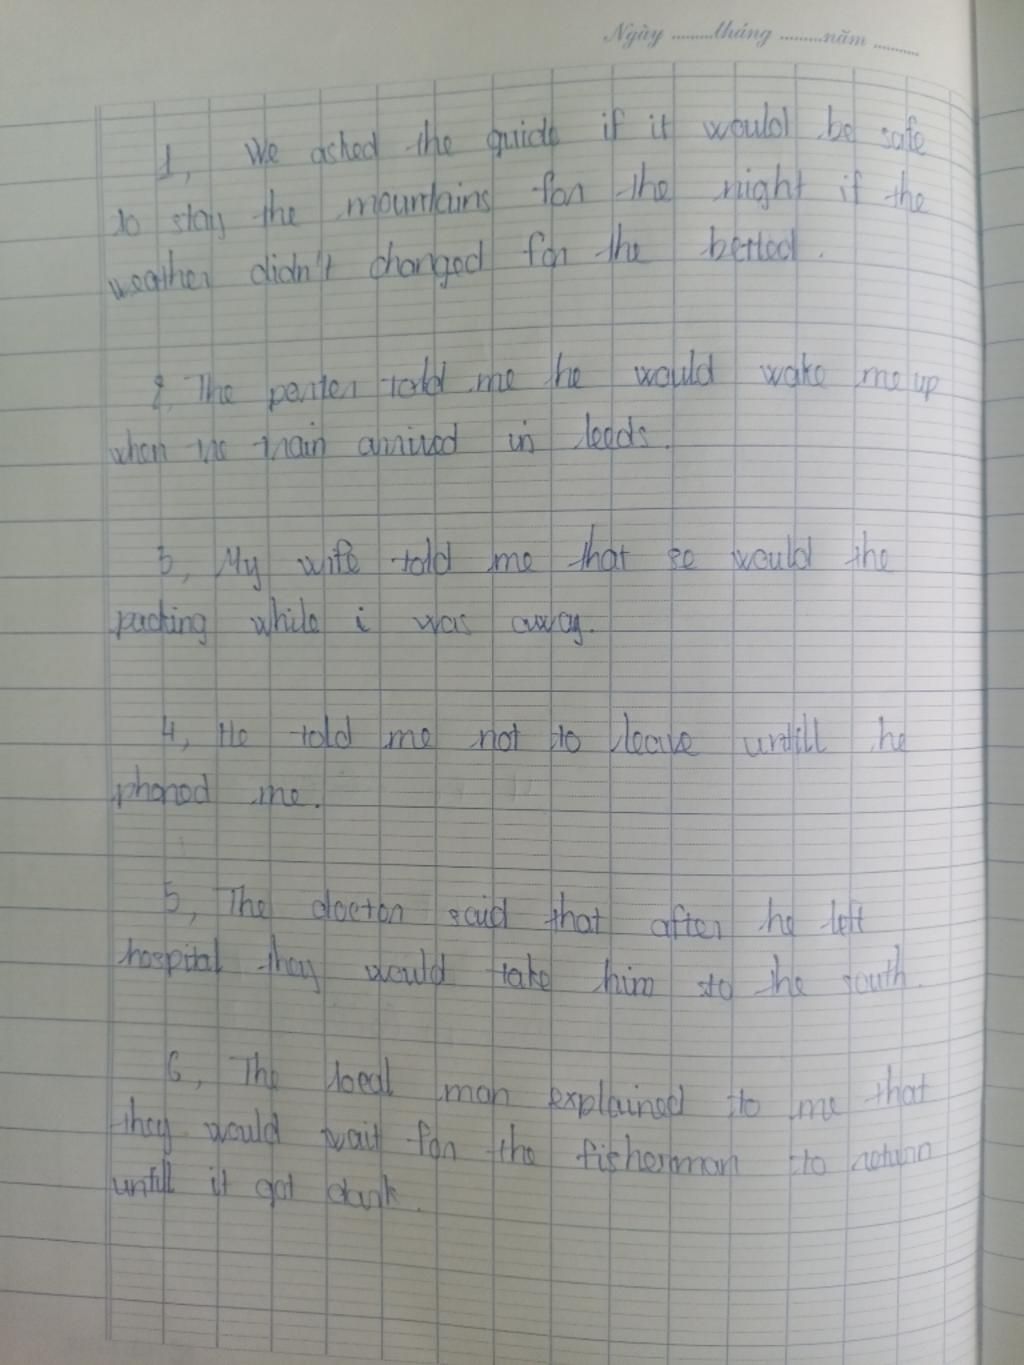 Ngày .........tháng .........năm ..........
1, We asked the guide if it would be safe
to stay the mountains for the night if the
weather didn't changed for the betted.
2, The porter told me he would wake me up
when the train arrived in leeds.
3, My wife told me that se would the
packing while i was away.
4, He told me not to leave untill he
phoned me.
5, The doctor said that after he left
hospital they would take him to the south.
6, The local man explained to me that
they would wait for the fisherman to return
untill it got dark.